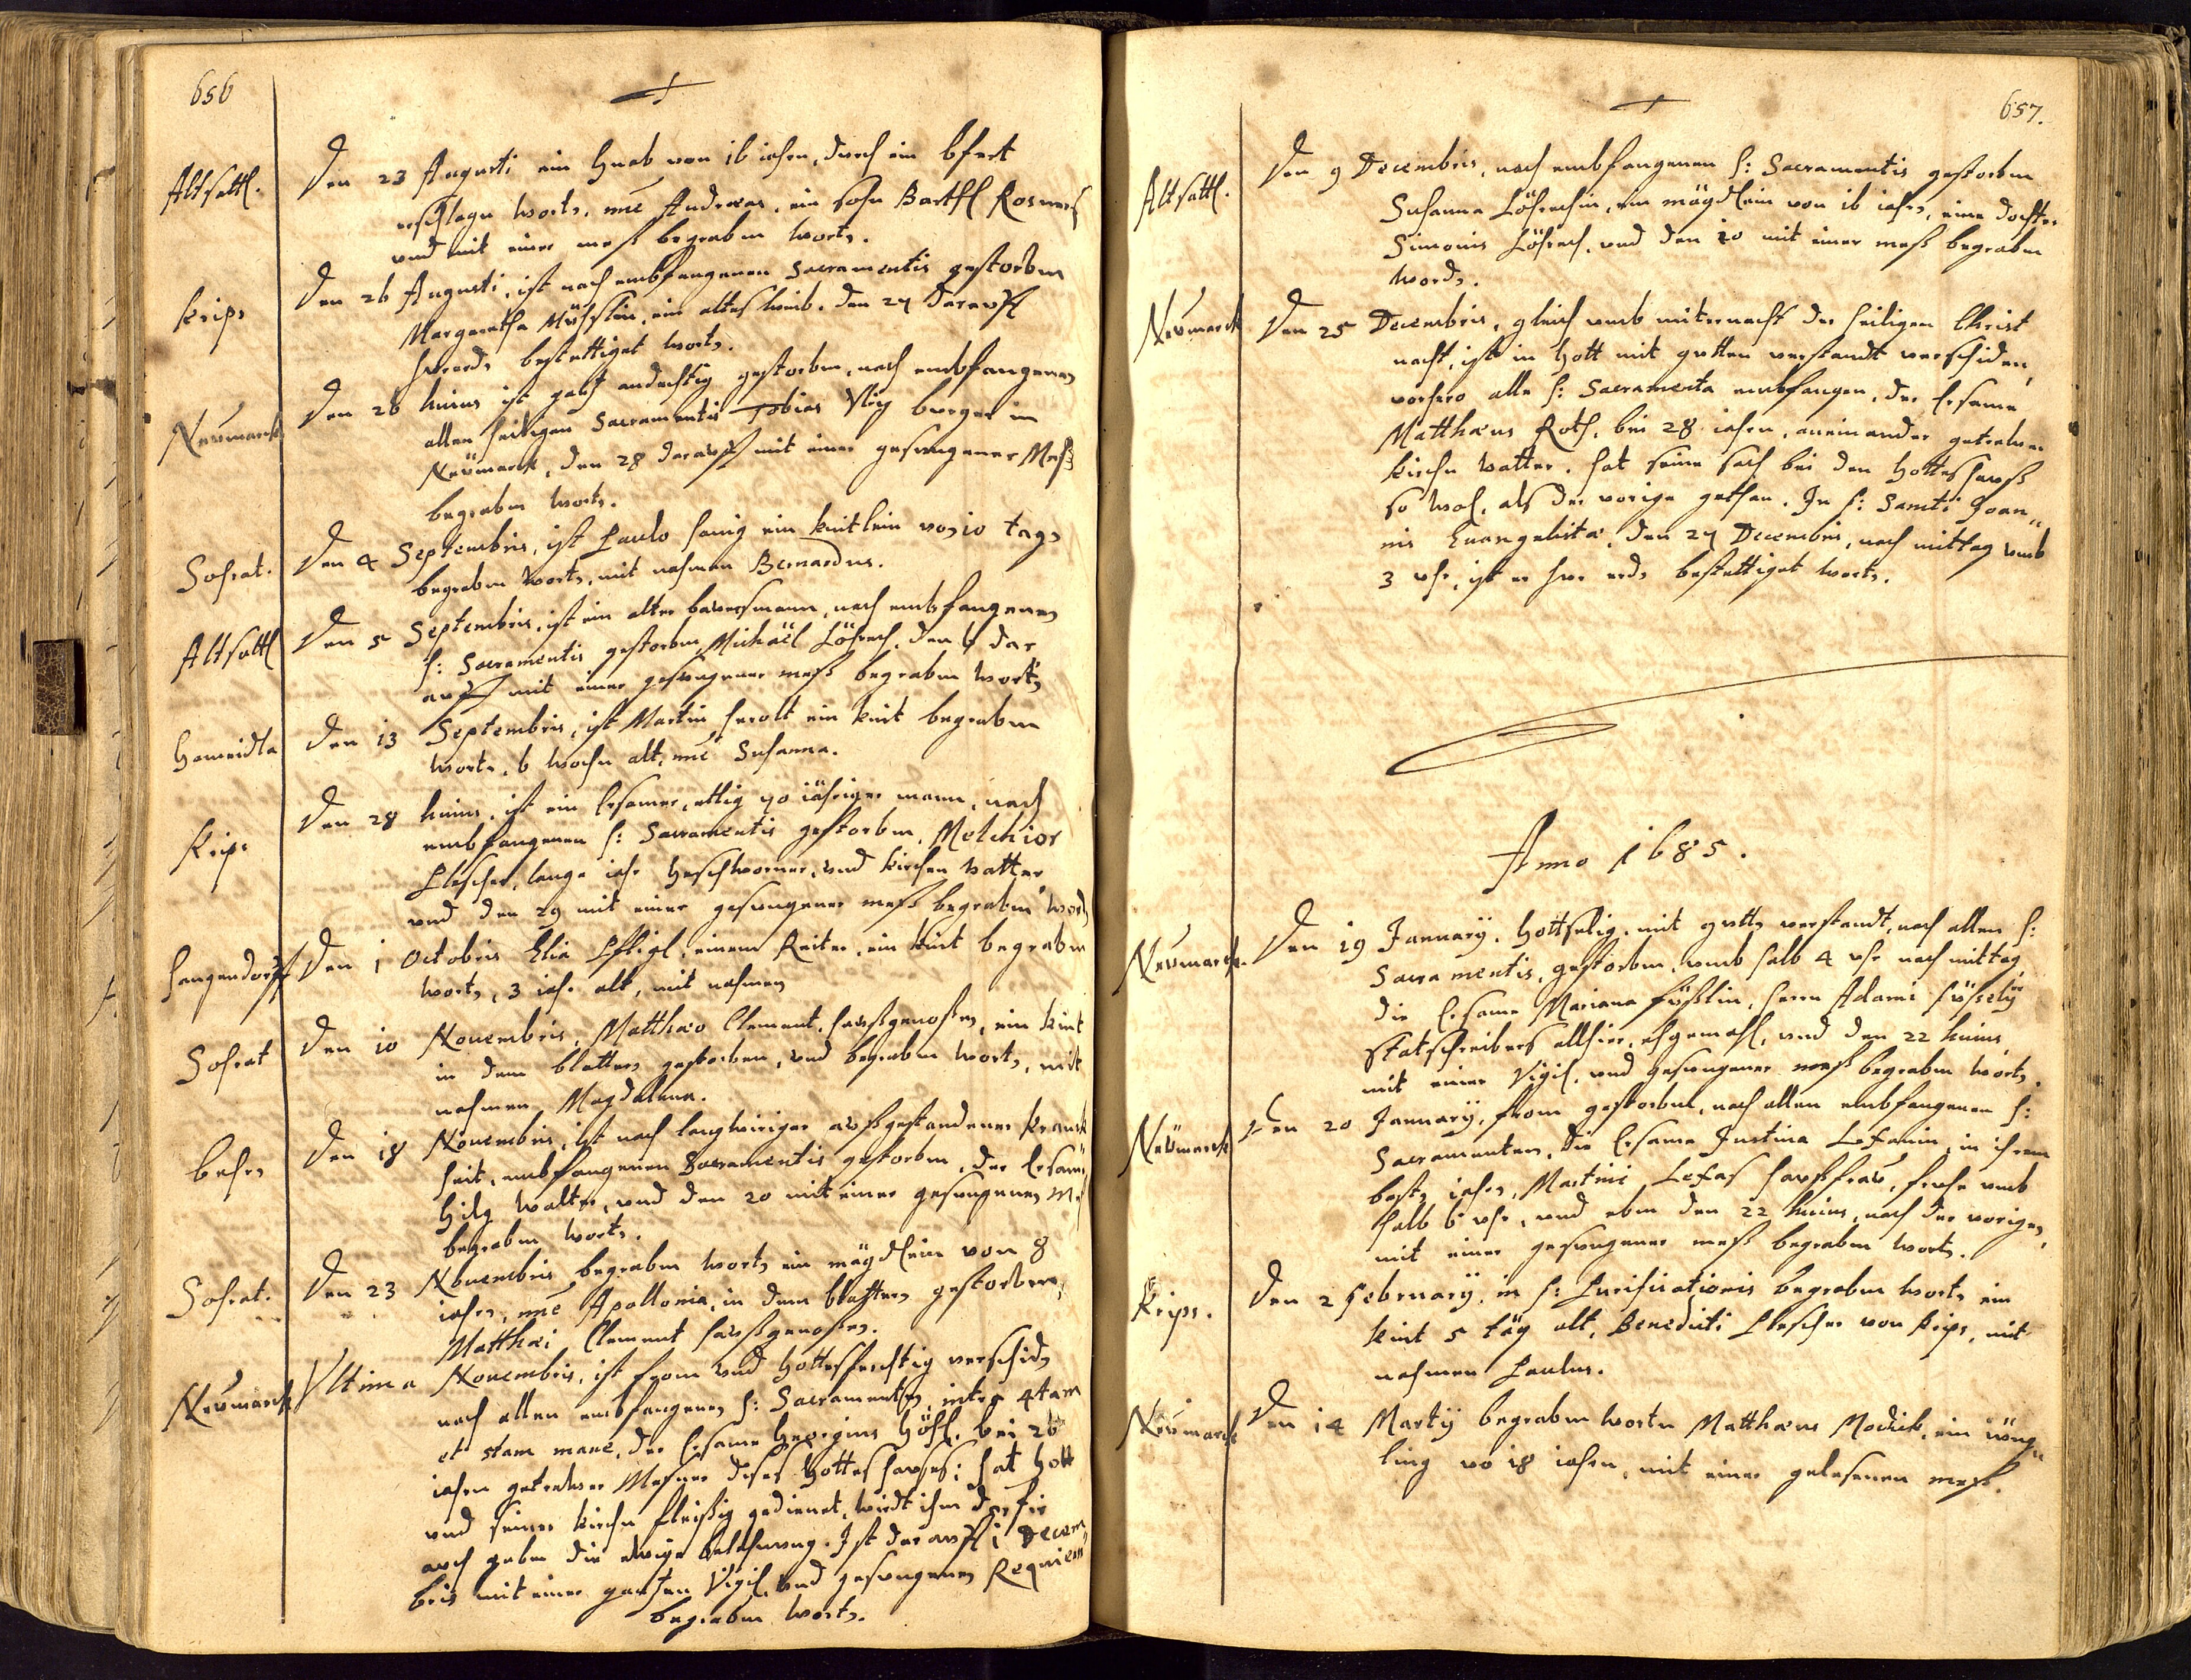 656
Altsattl.
Den 23 Augusti ein Knab von 16 iahrn, durch ein Pfert
erschlagn wortn, nne Andreas, ein sohn Barthl Rosners
und mit einer meß begrabn wortn.
Krips
Den 26 Augusti, ist nach embfangenen Sacramentis gestorbm
Margaretha, ein altes weib. den 27 darauff
bestettiget wortn.
Neümarck
Den 26 huius ist gantz andächtig gestorbm, nach embfangenen
allen heiligen Sacramentis Tobias burger in
Neümarck, den 28 darauff mit einer gesungener Meß
begrabm wortn.
Sohrat.
Den 4 Septembris, ist Paulo ein kintlein von 10 tagn
begrabm wortn, mit nahmen Bernardus.
Altsattl
Den 5 Septembris, ist ein alter baursmann, nach embfangenen
h: Sacramentis gestorbm, Michäel Löhrl, den 6 dar
auff mit einer gesungener meß begrabm wortn
Den 13 Septembris, ist Martin herolt ein kint begrabm
wortn, 6 wochn alt, nne Susanna.
Krips
Den 28 huius, ist ein Ersamer, ettlig 70 iähriger mann, nach
embfangenen h: Sacramentis gestorbm, Melchior
Plescher, lange iahr Geschworner, und kirchen vatter,
und den 29 mit einer gesungener meß begrabm word
Hangendorff
Den 1 Octobris Elia, einem Reiter, ein kint begrabm
wortn, 3 iahr alt, mit nahmen
Sohrat
Den 10 Nouembris, Matthæo Clement, haußgenoßen, ein kint
in dem blattern gestorben, und begrabm wortn, mit
nahmen Magdalena.
Den 18 Nouembris, ist nach langwiriger außgestandener kranck
heit, embfangenen Sacramentis gestorbm, der Ersame
Walter, und den 20 mit einer gesungenen Meß
begrabm wortn.
Sohrat.
Den 23 Nouembris begrabm wortn ein mägdlein von 8
iahrn, nne Apollonia, in dem blattern gestorbm,
Matthæi Clement haußgenoßen.
Neümarck
Vltima Nouembris, ist from und Gottesfürchtig verschidn
nach allen embfangenen h: Sacramenten, inter 4tam
et 5tam mane, der Ersame Georgius, bei 26
iahrn getrewer Mesner dises Gotteshauses: hat Gott
und seiner kirchn fleißig gedienet, wirdt ihm darfür
auch geben die ewige belohnung. Ist darauff 1 Decem
bris mit einer gantzen Vigil, und gesungenen Requiem
begrabm wortn.
657.
Altsattl.
Den 9 Decembris, nach embfangenen h: Sacramentis gestorbm
Susanna, ein mägdlein von 16 iahrn, eine dochter
Simonis Löhrl, und den 10 mit einer meß begrabm
wordn.
Neümarck
Den 25 Decembris, gleich umb mitternacht der heiligen Christ
nacht, ist in Gott mit gutten verstandt verschiden,
vorhero alle h: Sacramenta embfangen, der Ersame
Matthæus Roth, bei 28 iahrn, aneinander getrewer
kirchn vatter. hat seine sach bei den Gotteshauß
so wol, als der vorige gethan. In f: Sancti Joan„
nis Euangelistæ, den 27 Decembris, nach mittag umb
3 uhr, ist er zur erdn bestettiget wortn.
Anno 1685.
Neümarck.
Den 19 Januarÿ, Gottselig, mit guttn verstandt, nach allen h:
Sacramentis, gestorbm, umb halb 4 uhr nach mittag
die Ersame Mariana, herrn Adami
statschreibers allhier, ehgemahl, und den 22 huius
mit einer Vigil, und gesungener meß begrabm wortn.
Neümarck
Den 20 Januarÿ, from gestorbm, nach allen embfangenen h:
Sacramenten, die Ersame Justina Lexanin, in ihrem
bestn iahrn, Martini Lexas haußfrau, fruhe umb
halb 6 uhr, und ebm den 22 huius, nach der vorigen,
mit einer gesungener meß begrabm wortn.
Krips.
Den 2 Februarÿ, in f: Purificationis begrabm wortn ein
kint 5 täg alt, Benedicti Plescher von Krips, mit
nahmen Paulus.
Neümarck
Den 14 Martÿ begrabm wortn Matthæus Modick, ein iüng„
ling vo 18 iahrn, mit einer gelesenen meß.